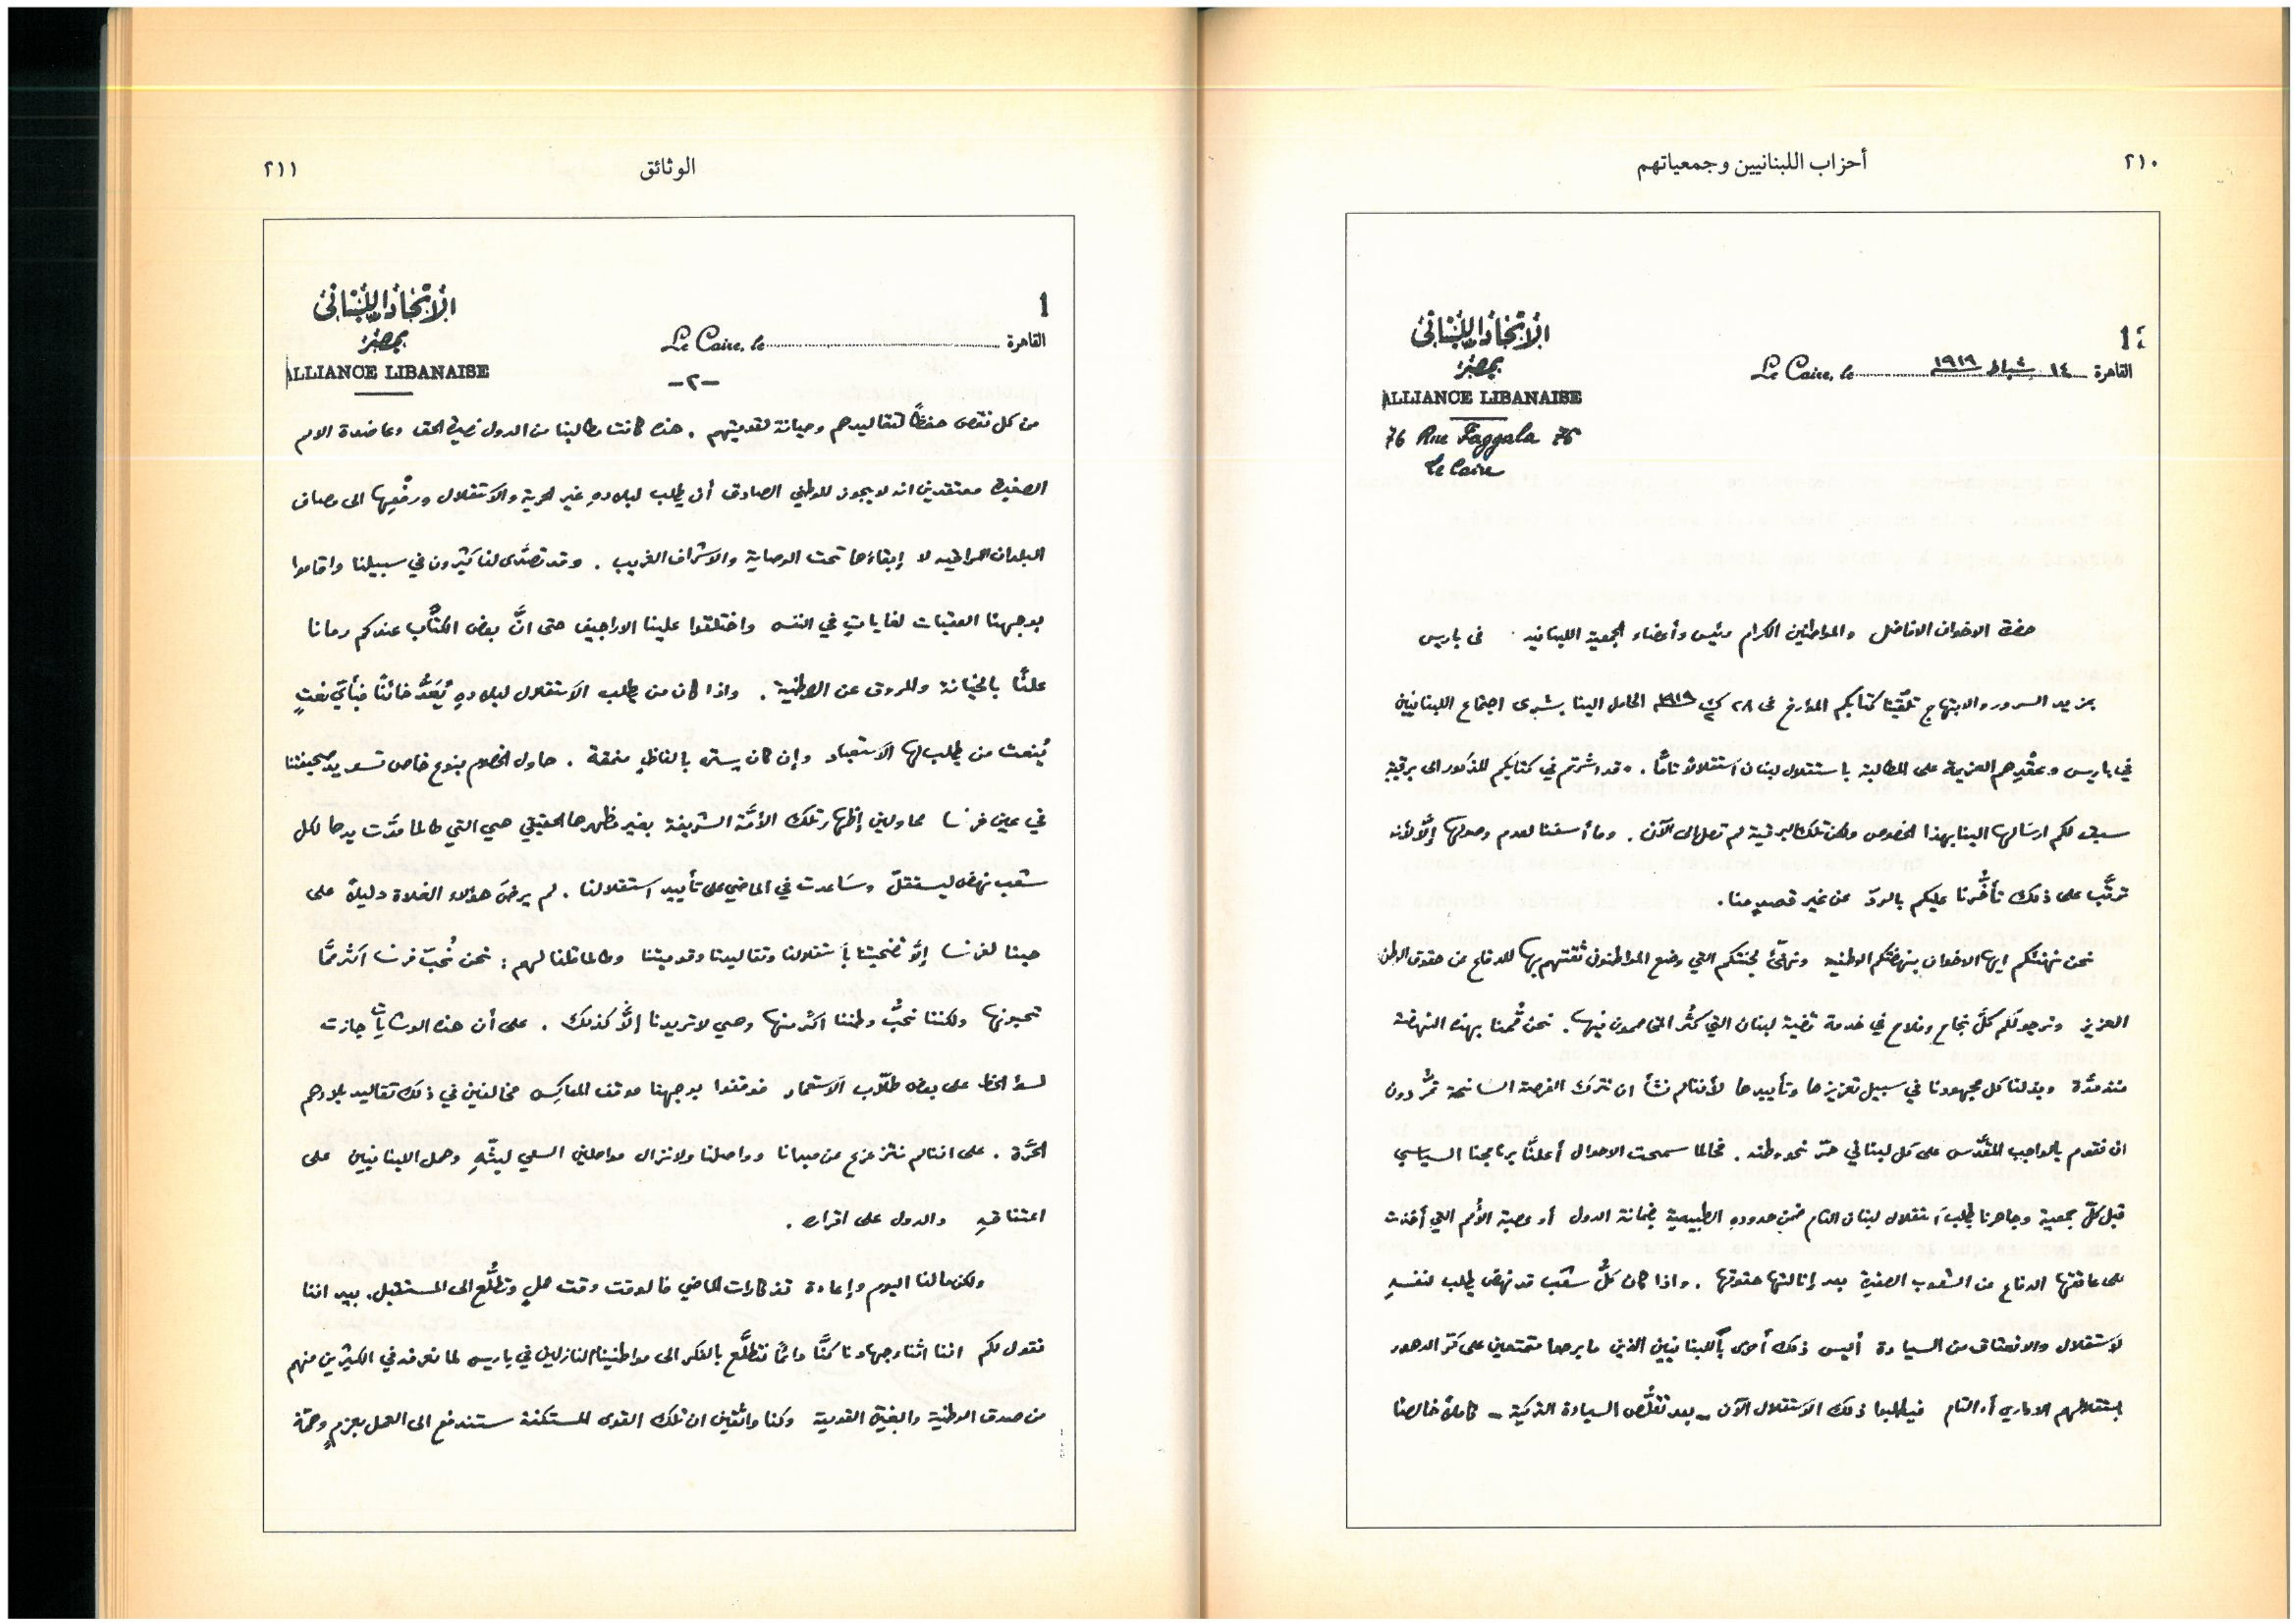 ٢١٠
أحزاب اللبنانيين وجمعياتهم
الاتحاد اللبناني
بمصر
ALLIANCE LIBANAISE
76 Rue Faggala 76
Le Caire
القاهرة ١٤ شباط ١٩١٩ Le Caire, le
حضرة الاخوان الافاضل والمواطنين الكرام رئيس وأعضاء الجمعية اللبنانية في باريس
بمزيد السرور والابتهاج تلقّينا كتابكم المؤرخ في ٢٨ ك٢ ١٩١٩ الحامل الينا بشرى اجتماع اللبنانيين
في باريس وعقْدِهم العزيمة على المطالبة باستقلال لبنان استقلالاً تامًّا. وقد اشرتم في كتابكم المذكور الى برقيةٍ
سبق لكم ارسالها الينا بهذا الخصوص ولكن تلك البرقية لم تصل الى الآن. وما أسفنا لعدم وصولها إلَّا لأنه
ترتَّب على ذلك تأخُّرنا عليكم بالردّ عن غير قصدٍ منا.
نحن نهنئكم ايها الاخوان بنهضتكم الوطنية ونهنّئ لجنتكم التي وضع المواطنون ثقتهم بها للدفاع عن حقوق الوطن
العزيز ونرجو لكم كلَّ نجاح وفلاح في خدمة قضية لبنان التي كثُر المخاصمون فيها. نحن قُمنا بهذه النهضة
منذ مدَّة وبذلنا كل مجهودنا في سبيل تعزيزها وتأييدها لأننا لم نشأ ان نترك الفرصة السانحة تمرُّ دون
ان نقوم بالواجب المقدَّس على كل لبناني حرّ نحو وطنه. فحالما سمحت الاحوال أعلنَّا برنامجنا السياسي
قبل كلّ جمعية وجاهرنا بطلب استقلال لبنان التام ضمن حدوده الطبيعية بضمانة الدول أو عصبة الأمم التي أخذت
على عاتقها الدفاع عن الشعوب الصغيرة بعد إنالتها حقوقها. واذا كان كلُّ شعب قد نهض يطلب لنفسهِ
الاستقلال والانعتاق من السيادة أليس ذلك أحرى باللبنانيين الذين ما برحوا متمتعين على كرّ الدهور
باستقلالهم الاداري أو التام فيطلبوا ذلك الاستقلال الآن – بعد تقلُّص السيادة التركية – كاملاً خالصًا
الوثائق
٢١١
الاتحاد اللبناني
بمصر
ALLIANCE LIBANAISE
القاهرة Le Caire, le
–٢–
من كل نقص حفظًا لتقاليدهم وصيانة لقوميتهم. هذه كانت مطالبنا من الدول نصيرة الحق وعاضدة الامم
الصغيرة معتقدين انه لا يجوز للوطني الصادق أن يطلب لبلادهِ غير الحرية والاستقلال ورفْعِها الى مصاف
البلدان الراقية لا إبقاؤها تحت الوصاية والاشراف الغريب. وقد تصدَّى لنا كثيرون في سبيلنا واقاموا
بوجهنا العقبات لغاياتٍ في النفس واختلقوا علينا الاراجيف حتى انَّ بعض الكتَّاب عندكم رمانا
علنًا بالخيانة والمروق عن الوطنية. واذا كان من يطلب الاستقلال لبلادهِ يُعَدُّ خائنًا فبأيّ نعتٍ
يُنعت من يطلب لها الاستعباد وإن كان يستره بالفاظٍ منمقة. حاول الخصوم بنوع خاص تسويد صحيفتنا
في عين فرنسا محاولين إظهار تلك الأمَّة الشريفة بغير مظهرها الحقيقي هي التي طالما مدَّت يدها لكل
شعب نهض ليستقلّ وساعدت في الماضي على تأييد استقلالنا. لم يرضَ هؤلاء الغلاة دليلاً على
حبنا لفرنسا إلَّا تضحيتنا باستقلالنا وتقاليدنا وقوميتنا وطالما قلنا لهم: نحن نُحبّ فرنسا اكثر ممَّا
تحبونها ولكننا نحبُّ وطننا اكثر منها وهي لا تريدنا إلَّا كذلك. على أن هذه الوشايات جازت
لسوء الحظ على بعض طلّاب الاستعمار فوقفوا بوجهنا موقف المعاكس مخالفين في ذلك تقاليد بلادهم
الحرَّة. على اننا لم نتزعزع عن مبدانا وواصلنا ولا نزال مواصلين السعي لبثّهِ وحمل اللبنانيين على
اعتناقهِ والدول على اقراره.
ولكن ما لنا اليوم وإعادة تذكارات الماضي فالوقت وقت عملٍ وتطلُّع الى المستقبل. بيد اننا
نقول لكم اننا اثناء جهادنا كنَّا دائمًا نتطلَّع بالفكر الى مواطنينا النازلين في باريس لما نعرفه في الكثيرين منهم
من صدق الوطنية والغيرة القومية وكنا واثقين ان تلك القوى المستكنة ستندفع الى العمل بعزمٍ وهمّة